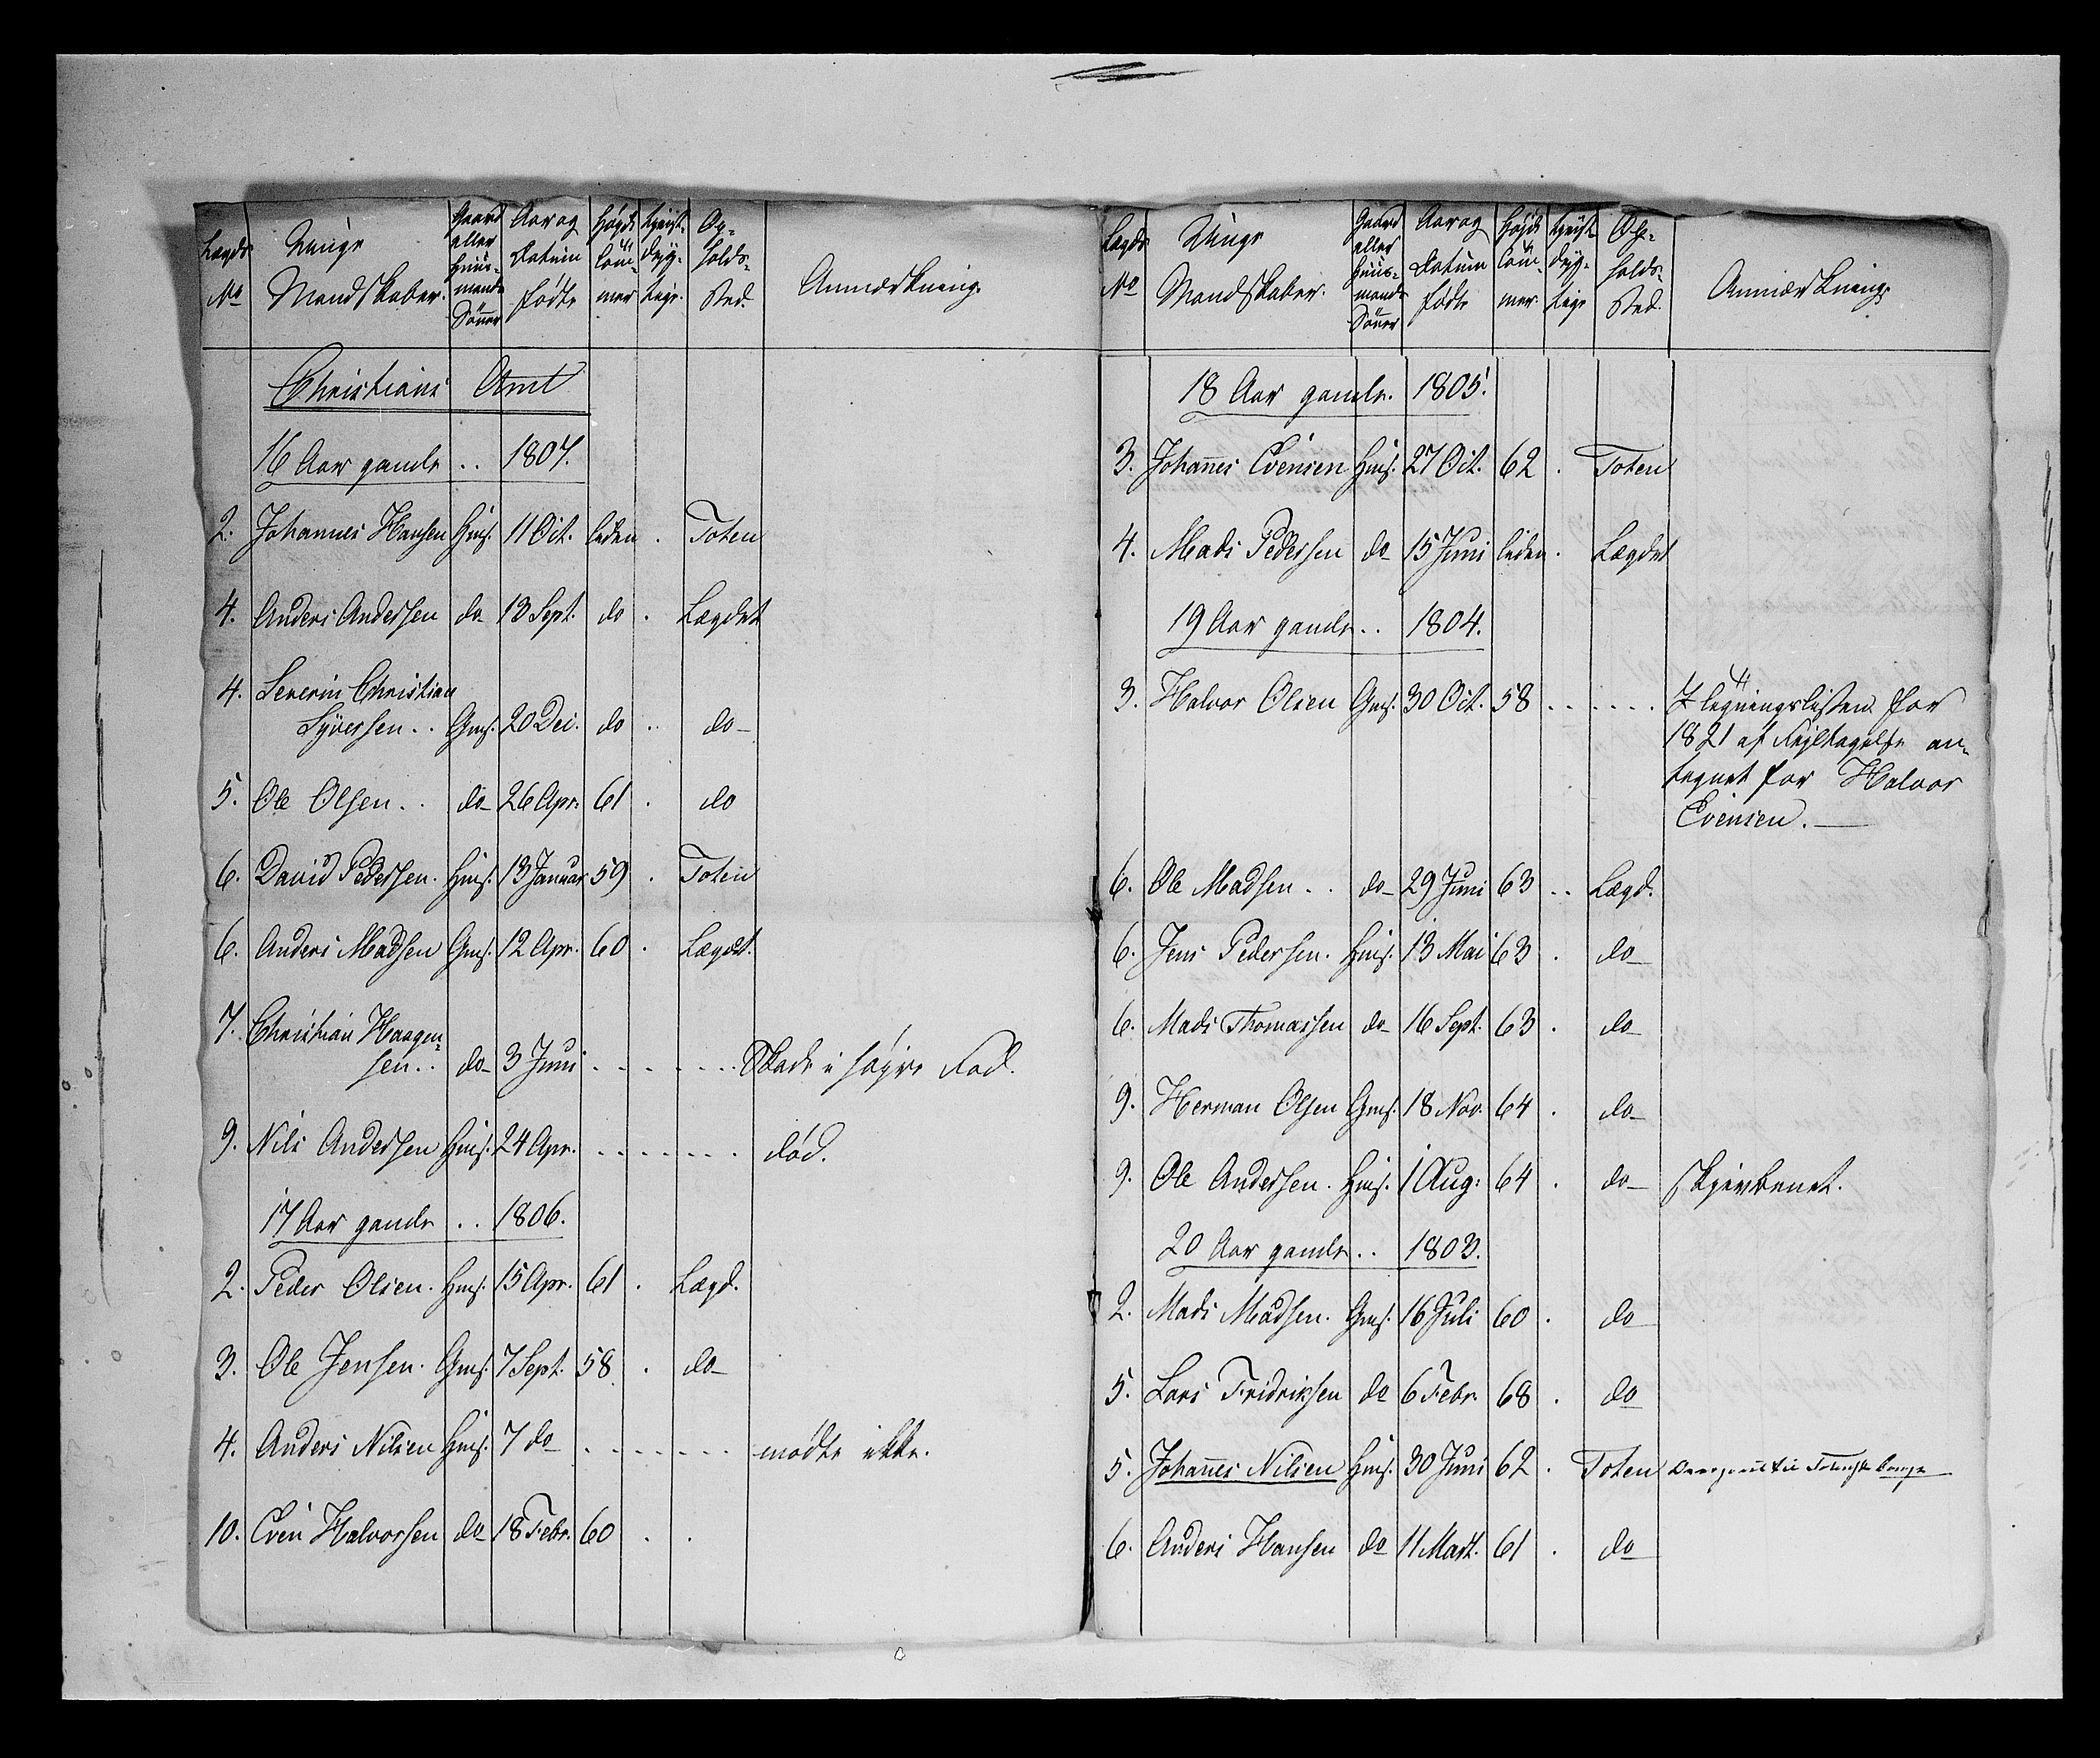 Lægds No | Unge Mandskaber. | Gaard eller Huus-mands Sönner | Aar og Datum födte | Høyde Tommer | Opholds-Sted. | Anmærkning.
Christians Amt
16 Aar gamle .. 1807.
2. Johannes Hansen Hms. 11 Oct. liden . Toten
4. Anders Andersen do 13 Sept. do . Lægdet
4. Severin Christian
Syversen .. Gms. 20 Dec. do .. do
5. Ole Olsen .. do 26 Apr. 61 . do
6. David Pedersen. Hms. 13 Januar 59 . Toten
6. Anders Madsen Gms. 12 Apr. 60 . Lægdet.
7. Christian Haagen-
sen .. do 3 Juni . . . . . . . Skade i høyre Fod.
9. Nils Andersen Hms. 24 Apr. . . . . . . . død.
17 Aar gamle .. 1806.
2. Peder Olsen. Hms. 15 Apr. 61 . Lægd.
3. Ole Jensen. Gms. 7 Sept. 58 . do
4. Anders Nilsen Hms. 7 do . . . . . . . mødte ikke.
10. Even Halvorsen do 18 Febr. 60 . .
Lægds No | Unge Mandskaber. | Gaard eller Huus-mands Sönner | Aar og Datum födte | Høyde Tommer. | Opholds-Sted. | Anmærkning
18 Aar gamle. 1805.
3. Johannes Evensen Hms. 27 Oct. 62 . Toten
4. Mads Pedersen do 15 Juni liden . Lægdet
19 Aar gamle .. 1804.
3. Halvor Olsen Gms. 30 Oct. 58 . . . . . . I legningslisten for
1821 af Fejltagelse an-
tegnet for Halvor
Evensen.
6. Ole Madsen .. do 29 Juni 63 .. Lægd.
6. Jens Pedersen. Hms. 13 Mai 63 . do
6. Mads Thomassen do 16 Sept. 63 . do
9. Herman Olsen Gms. 18 Nov. 64 . do
9. Ole Andersen. Hms. 1 Aug: 64 . do Skjevbenet.
20 Aar gamle .. 1803.
2. Mads Madsen. Gms. 16 Juli 60 . do
5. Lars Fridriksen do 6 Febr. 68 . do
5. Johannes Nilsen Hms. 30 Juni 62 . Toten
6. Anders Hansen do 11 Mart. 61 . do